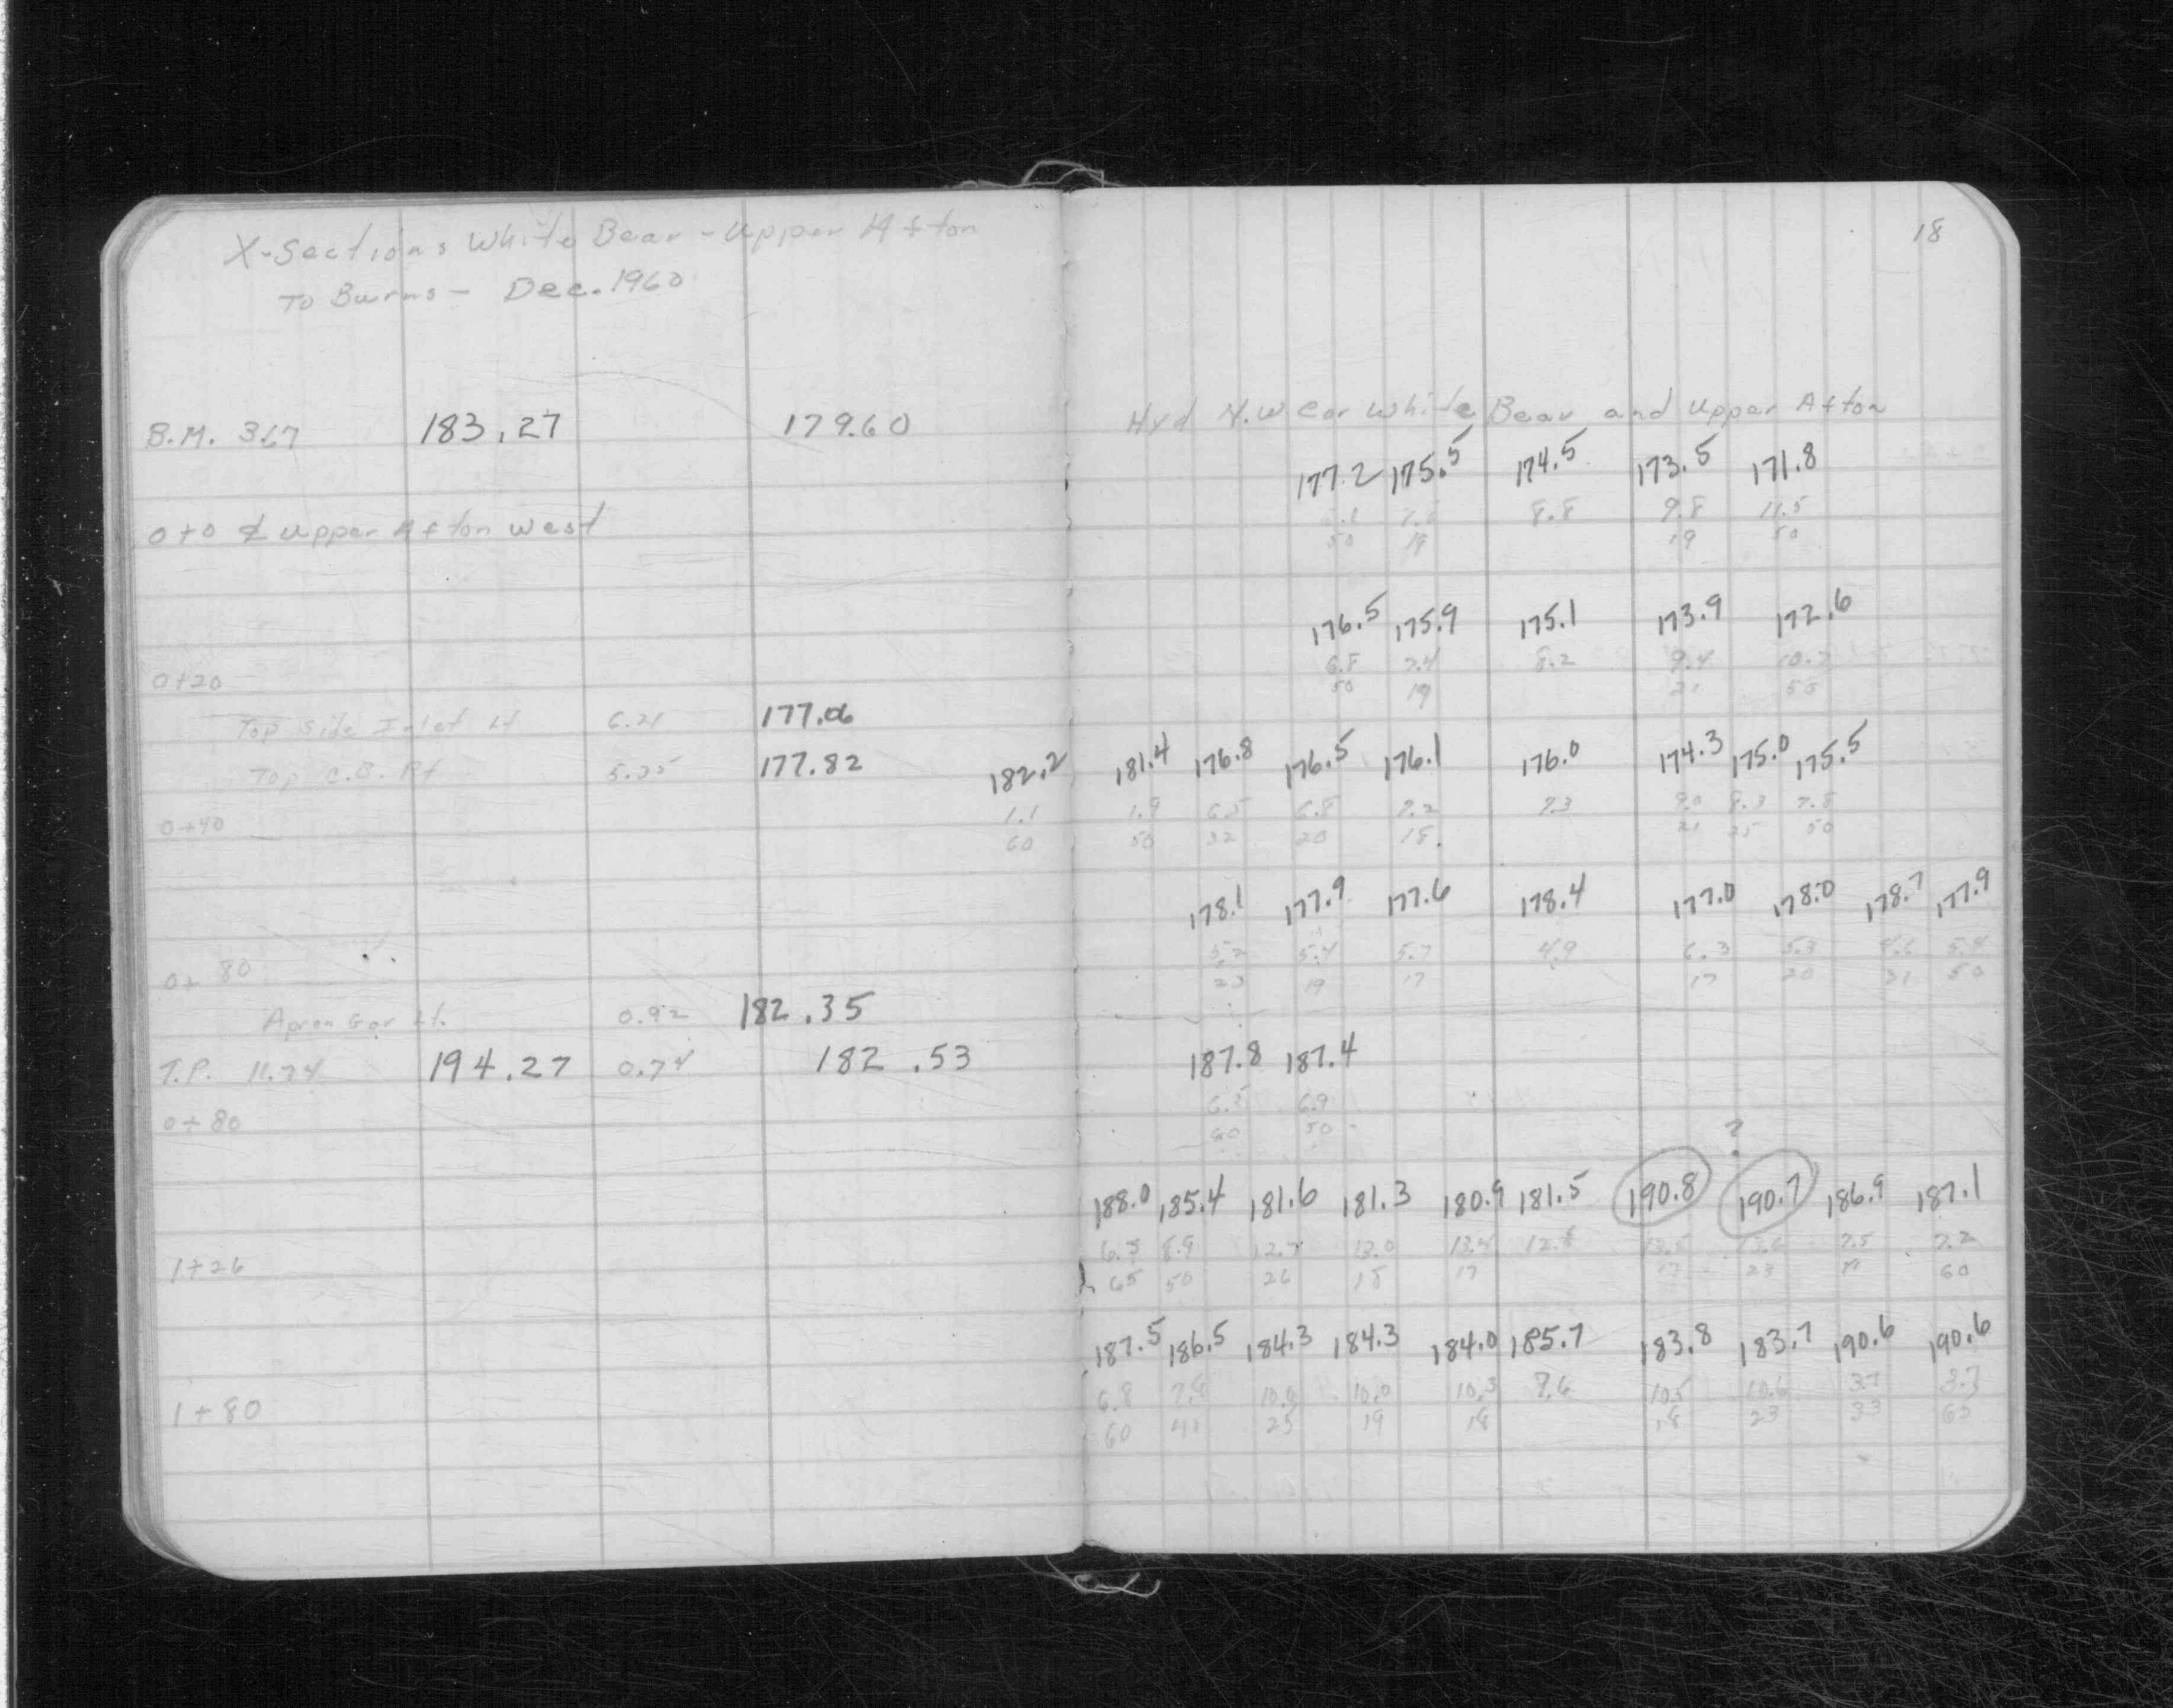 X-Sections White Bear - Upper Afton
To Burns - Dec. 1960
18
B.M. 3.67 183.27 179.60 Hyd N.W Cor White Bear and Upper Afton
177.2 175.5 174.5 173.5 171.8
6.1 7.8 8.8 9.8 11.5
0+0 ℄ Upper Afton West 50 19 19 50
176.5 175.9 175.1 173.9 172.6
6.8 7.4 8.2 9.4 10.7
0+20 50 19 21 50
Top Side Inlet Lt 6.21 177.06
Top C.B. Rt 5.35 177.82 182.2 181.4 176.8 176.5 176.1 176.0 174.3 175.0 175.5
1.1 1.9 6.5 6.8 7.2 7.3 9.0 8.3 7.8
0+40 60 50 32 20 18 21 25 50
178.1 177.9 177.6 178.4 177.0 178.0 178.7 177.9
5.2 5.4 5.7 4.9 6.3 5.3 4.6 5.4
0+80 23 19 17 17 20 31 50
Apron Gar Lt. 0.92 182.35
T.P. 11.74 194.27 0.74 182.53 187.8 187.4
6.5 6.9
0+80 60 50
?
188.0 185.4 181.6 181.3 180.9 181.5 190.8 190.7 186.9 187.1
6.3 8.9 12.7 13.0 13.4 12.8 13.5 13.6 7.5 7.2
1+26 65 50 26 18 17 17 23 60
187.5 186.5 184.3 184.3 184.0 185.7 183.8 183.7 190.6 190.6
6.8 7.8 10.0 10.0 10.3 8.6 10.5 10.6 3.7 3.7
1+80 60 41 25 19 18 18 23 33 65